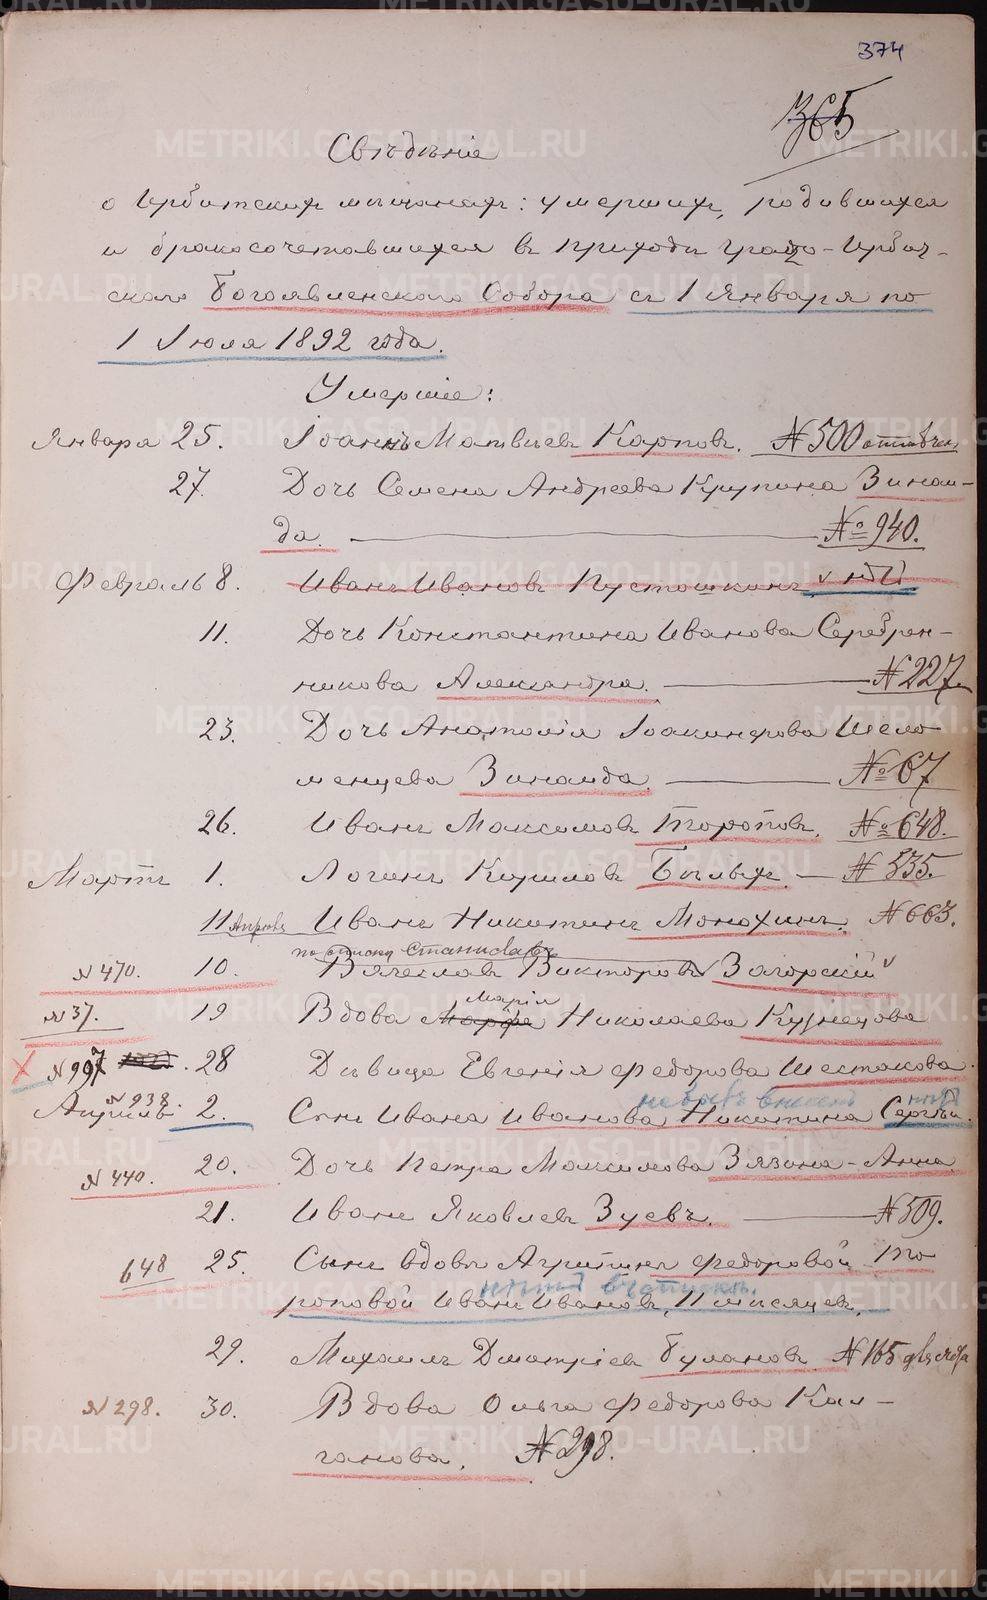 374
365
Свѣдѣніе
о Ирбитскихъ мѣщанахъ: умершихъ, родившихся
и бракосочетавшихся въ приходѣ Градо-Ирбит-
скаго Богоявленскаго Собора съ 1 Января по
1 Іюля 1892 года.
Умершіе:
Января 25. Іоаннъ Матвѣевъ Карповъ. №500
27. Дочь Семена Андреева Крупина Зинаи-
да. №940.
Февраль 8. Иванъ Ивановъ Пустошкинъ
11. Дочь Константина Иванова Серебрен-
никова Александра. №227.
23. Дочь Анатолія Іоакинфова Шело-
менцева Зинаида №67
26. Иванъ Максимовъ Тороповъ. №648.
Мартъ 1. Логинъ Кириловъ Бѣлыхъ. №335.
11 Иванъ Никитинъ Монохинъ. №663.
по списку Станиславъ
№470. 10. Вячеславъ Викторовъ Загорскій
Марія
№37. 19 Вдова Марфа Николаева Кузнецова
№997 28 Дѣвица Евгенія Федорова Шестакова.
№938. не внесенъ
Апрѣль 2. Сынъ Ивана Иванова Никитина Сергѣй.
№440. 20. Дочь Петра Максимова Зязина-Анна
21. Иванъ Яковлевъ Зуевъ. №509.
648 25. Сынъ вдовы Агрипины Федоровой То-
роповой Иванъ Ивановъ, 11 мѣсяцевъ.
29. Михаилъ Дмитріевъ Булановъ №165
№298. 30. Вдова Ольга Федорова Кал-
ганова. №298.
METRIKI.GASO-URAL.RU